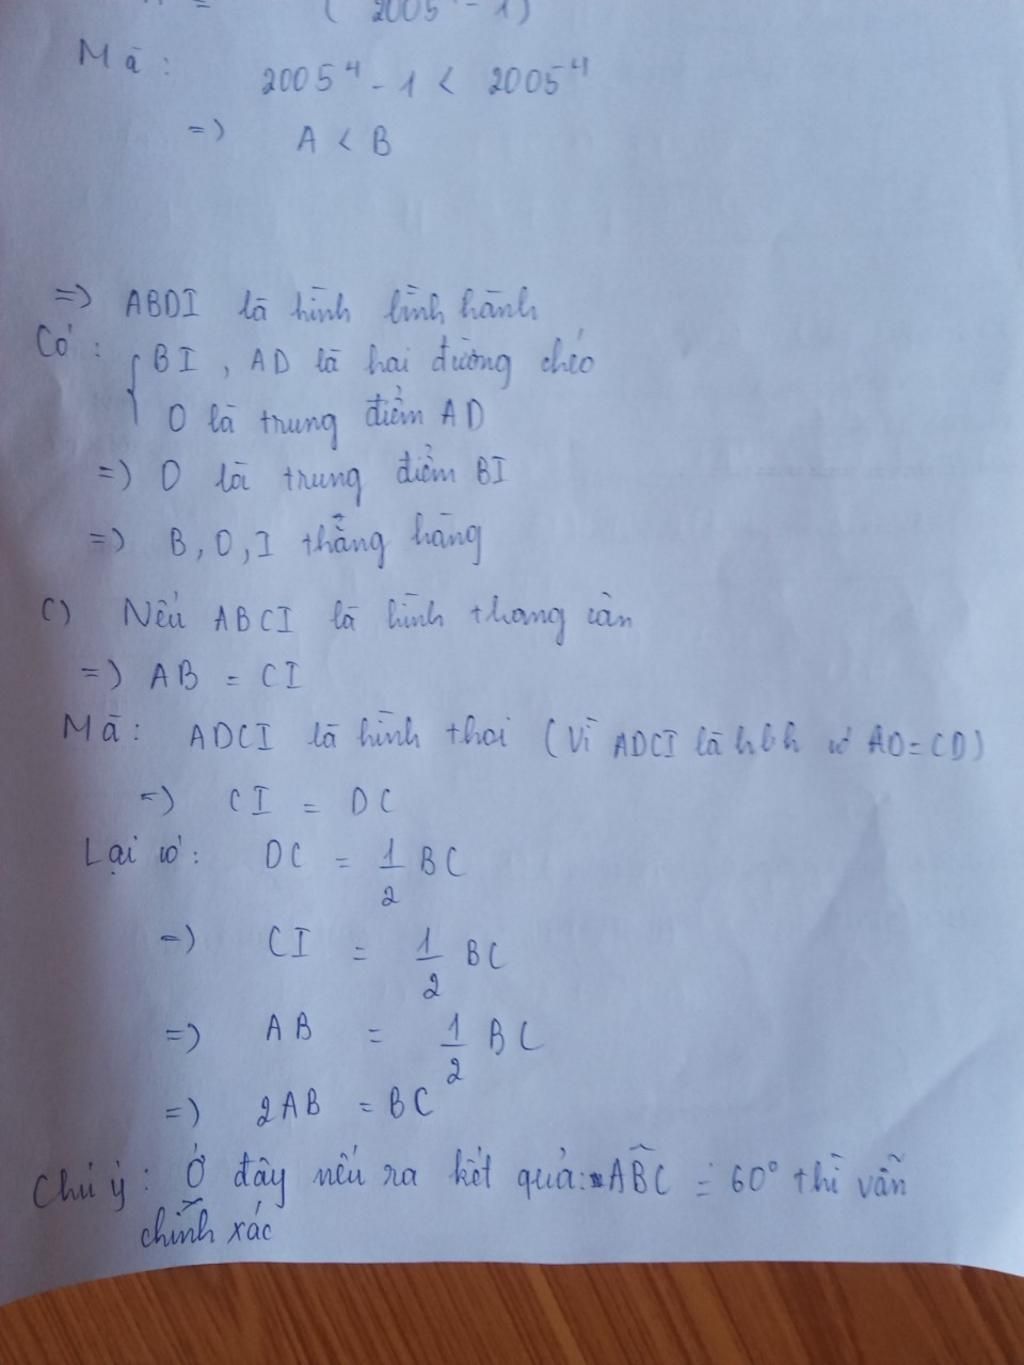 = (2005⁴ - 1)
Mà: 2005⁴ - 1 < 2005⁴
=> A < B
=> ABDI là hình bình hành
Có: { BI, AD là hai đường chéo
O là trung điểm AD
=> O là trung điểm BI
=> B, O, I thẳng hàng
C) Nếu ABCI là hình thang cân
=> AB = CI
Mà: ADCI là hình thoi (Vì ADCI là hbh có AD=CD)
=> CI = DC
Lại có: DC = 1/2 BC
=> CI = 1/2 BC
=> AB = 1/2 BC
=> 2AB = BC
Chú ý: Ở đây nếu ra kết quả: ABC = 60° thì vẫn
chính xác